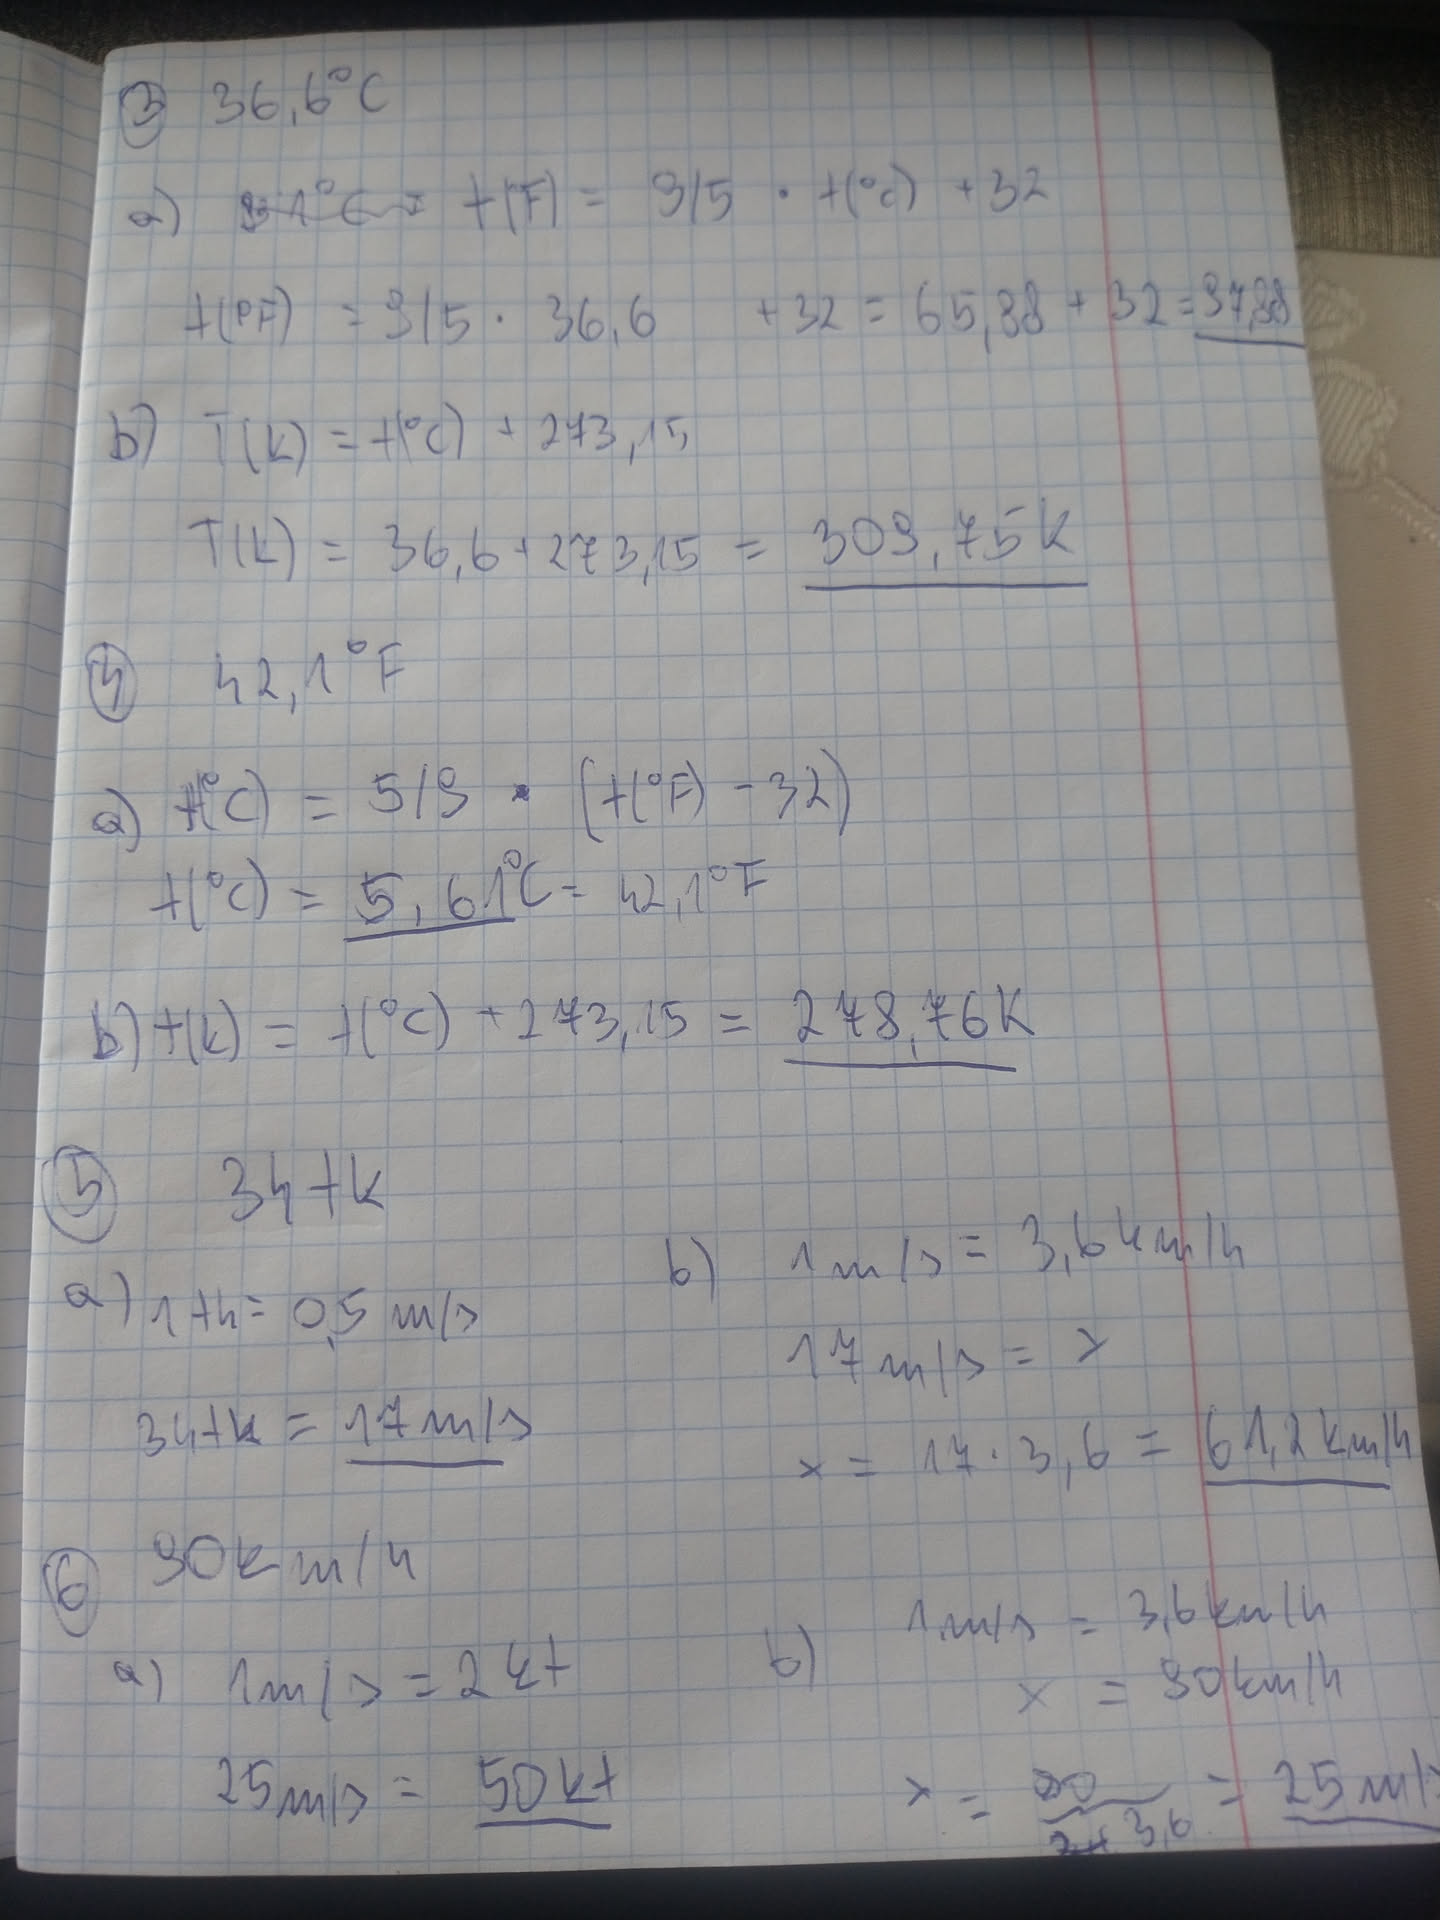 ③ 36,6°C
a) t(°F) = 9/5 · t(°C) + 32
t(°F) = 9/5 · 36,6 + 32 = 65,88 + 32 = 97,88
b) T(K) = t(°C) + 273,15
T(K) = 36,6 + 273,15 = 309,75K
④ 42,1°F
a) t(°C) = 5/9 · (t(°F) - 32)
t(°C) = 5,61°C = 42,1°F
b) t(K) = t(°C) + 273,15 = 278,76K
⑤ 34 tk
a) 1 th = 0,5 m/s
34 tk = 17 m/s
b) 1 m/s = 3,6 km/h
17 m/s = x
x = 17 · 3,6 = 61,2 km/h
⑥ 90 km/h
a) 1 m/s = 2 kt
25 m/s = 50 kt
b) 1 m/s = 3,6 km/h
x = 90 km/h
x = 90 / 3,6 = 25 m/s